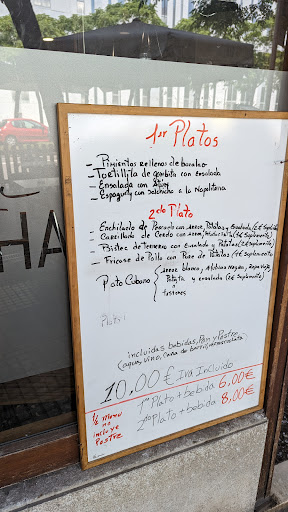 1er Platos
- Pimientos rellenos de bacalao
- Tortillita de gambita con ensalada
- Ensalada con Atún
- Espaguetis con Salchicha a la Napolitana
2do Plato
- Enchilado de Pescado con arroz, Patatas y Ensalada (2€ Suplemento)
- Carrillada de Cerdo con arroz, (1€ Suplemento)
- Bistec de ternera con Ensalada y Patatas (2€ Suplemento)
- Fricase de Pollo con Pure de Patatas (1€ Suplemento)
Plato Cubano { Arroz blanco, Frijoles Negros, Ropa Vieja,
Patata y ensalada (2€ Suplemento)
o
tostones
HA
incluidas bebidas, Pan y Postre
(agua, Vino, Caña de barril,
10,00 € Iva Incluido
1er Plato + bebida 6,00 €
2do Plato + bebida 8,00 €
½ menu
no
incluye
Postre